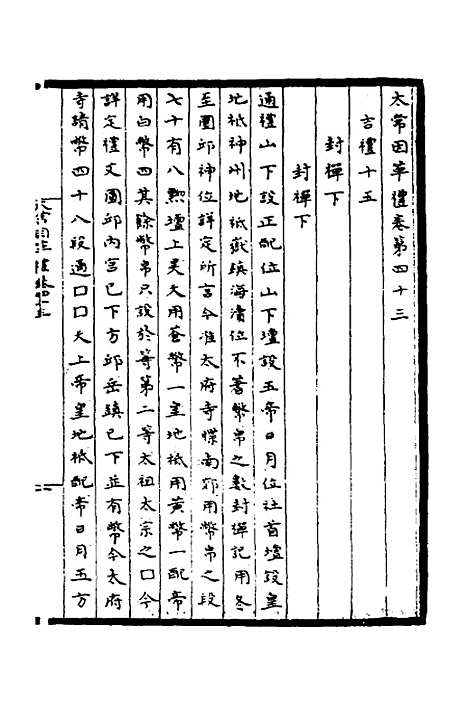 太常因革禮卷第四十三
吉禮十五
封禪下
封禪下
通禮山下設正配位山下壇設五帝日月位社首壇設皇
地祇神州地祇嶽鎮海瀆位不著幣帛之數封禪記用冬
至圜邱神位詳定所言今准太府寺牒南郊用幣帛之段
七十有八㷫壇上昊天用蒼幣一皇地祇用黃幣一配帝
用白幣四其餘幣帛只設於等第二等太祖太宗之口今
詳定禮文圜邱內官已下方邱岳鎮已下並有幣今太府
寺請幣四十八段通口口天上帝皇地祇配帝日月五方